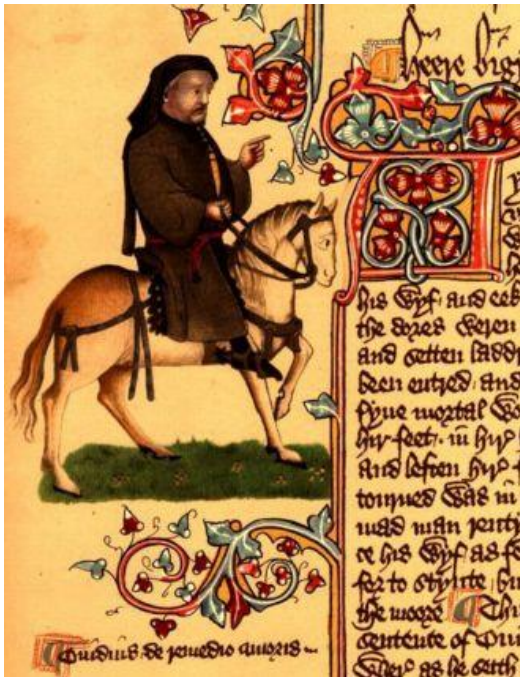 Heere big
his wyf and
the dores weren
and setten ladd
been entred and
fyue mortal wo
hir feet in hir
and leften hir
tourned was in
mad man renty
ce his wyf as fe
for to stynte bu
the moore Thi
sentence of Oui
wher as he seith
Ouidius de remedio amoris